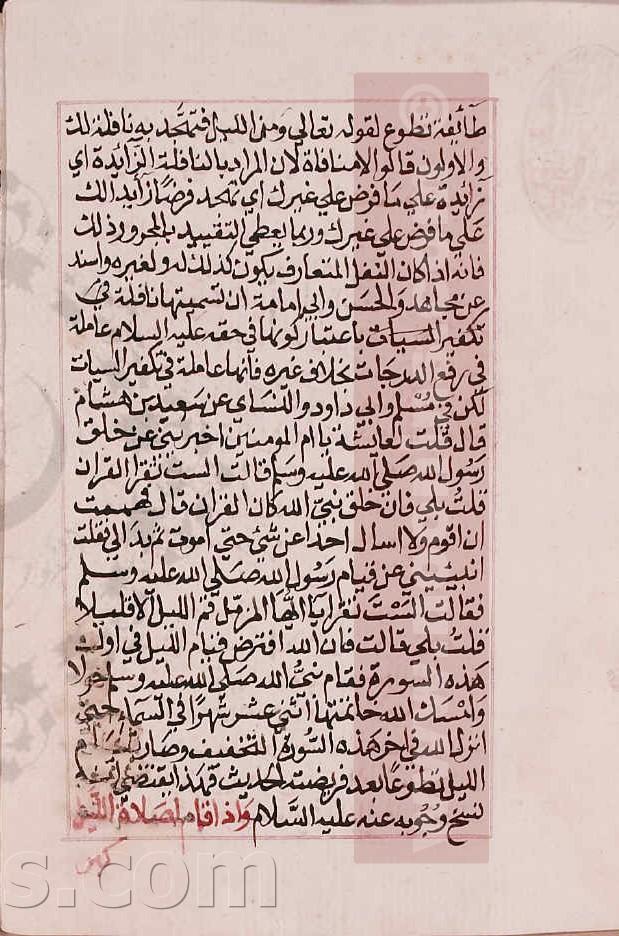 طائفة تطوع لقوله تعالي ومن الليل فتهجد به نافلة لك
والاولون قالوا لامنافاة لان المراد بالنافلة الزائدة اي
زائدة علي ما فرض علي غيرك اي تهجد فرضا زائدا لك
علي ما فرض علي غيرك وربما يعطي التقييد بالمجرور ذلك
فانه اذا كان النفل المتعارف يكون كذلك له ولغيره واسند
عن مجاهد والحسن وابي امامة ان تسميتها نافلة في
تكفير السيات باعتبار كونها في حقه عليه السلام عاملة
في رفع الدرجات بخلاف غيره فانها عاملة في تكفير السيات
لكن في مسلم وابي داود والنساي عن سعيد بن هشام
قال قلت لعايشة يا ام المومنين اخبريني عن خلق
رسول الله صلي الله عليه وسلم قالت الست تقرا القران
قلت بلي فان خلق نبي الله كان القران قال فهممت
ان اقوم ولا اسال احدا عن شئ حتي اموت ثم بدا لي فقلت
انبئيني عن قيام رسول الله صلي الله عليه وسلم
فقالت الست تقرا يا ايها المزمل قم الليل الا قليلا
قلت بلي قالت فان الله افترض قيام الليل في اول
هذه السورة فقام نبي الله صلي الله عليه وسلم حولا
وامسك الله خاتمتها اثني عشر شهرا في السماء حتي
انزل الله في اخر هذه السورة التخفيف وصار قيام
الليل تطوعا بعد فريضته الحديث فهذا يقتضي انه
نسخ وجوبه عنه عليه السلام واذا قام لصلاة الليل
s.com